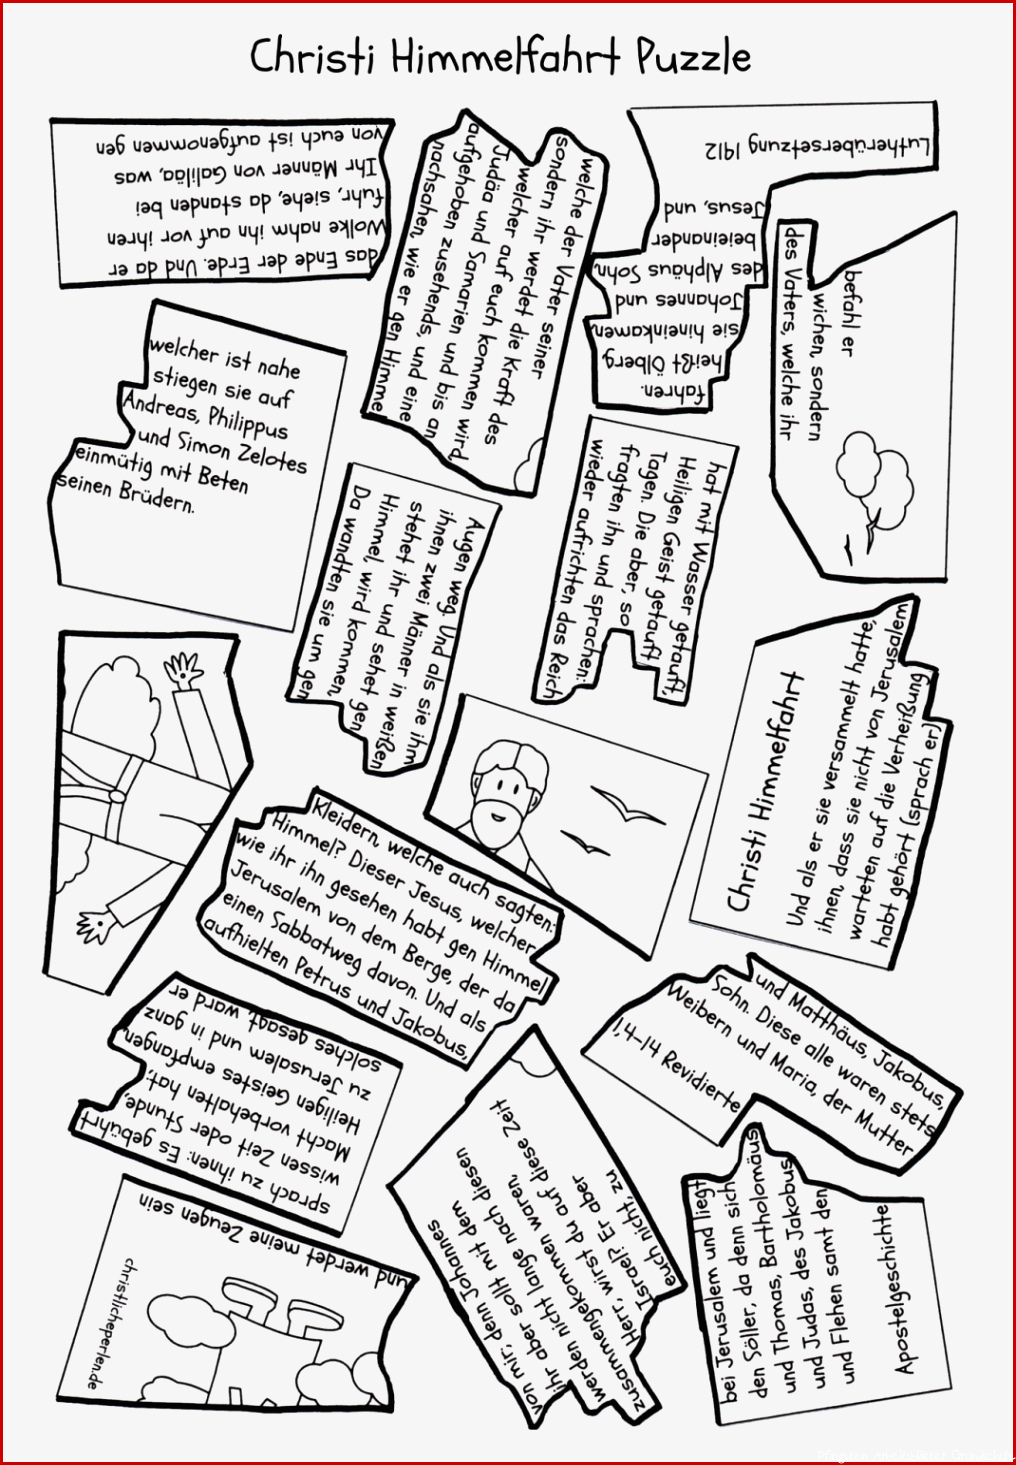 Christi Himmelfahrt Puzzle
das Ende der Erde. Und da er
Wolke nahm ihn auf vor ihren
fuhr, siehe, da standen bei
Ihr Männer von Galiläa, was
von euch ist aufgenommen gen
welche der Vater seiner
sondern ihr werdet die Kraft des
welcher auf euch kommen wird,
Judäa und Samarien und bis an
aufgehoben zusehends, und eine
nachsahen, wie er gen Himmel
fahren.
heißt Ölberg
sie hineinkamen,
Johannes und
des Alphäus Sohn,
beieinander
Jesus, und
Lutherübersetzung 1912
befahl er
wichen, sondern
des Vaters, welche ihr
welcher ist nahe
stiegen sie auf
Andreas, Philippus
und Simon Zelotes
einmütig mit Beten
seinen Brüdern.
Augen weg. Und als sie ihm
ihnen zwei Männer in weißen
stehet ihr und sehet gen
Himmel, wird kommen,
Da wandten sie um gen
hat mit Wasser getauft,
Heiligen Geist getauft
Tagen. Die aber, so
fragten ihn und sprachen:
wieder aufrichten das Reich
Christi Himmelfahrt
Und als er sie versammelt hatte,
ihnen, dass sie nicht von Jerusalem
warteten auf die Verheißung
habt gehört (sprach er)
Kleidern, welche auch sagten:
Himmel? Dieser Jesus, welcher
wie ihr ihn gesehen habt gen Himmel
Jerusalem von dem Berge, der da
einen Sabbatweg davon. Und als
aufhielten Petrus und Jakobus,
sprach zu ihnen: Es gebührt
wissen Zeit oder Stunde,
Macht vorbehalten hat;
Heiligen Geistes empfangen,
zu Jerusalem und in ganz
solches gesagt, ward er
und Matthäus, Jakobus,
Sohn. Diese alle waren stets
Weibern und Maria, der Mutter
1,4-14 Revidierte
und werdet meine Zeugen sein
christlicheperlen.de
von mir; denn Johannes
ihr aber sollt mit dem
werden nicht lange nach diesen
zusammengekommen waren,
Herr, wirst du auf diese Zeit
Israel? Er aber
euch nicht, zu
bei Jerusalem und liegt
den Söller, da denn sich
und Thomas, Bartholomäus
und Judas, des Jakobus
und Flehen samt den
Apostelgeschichte